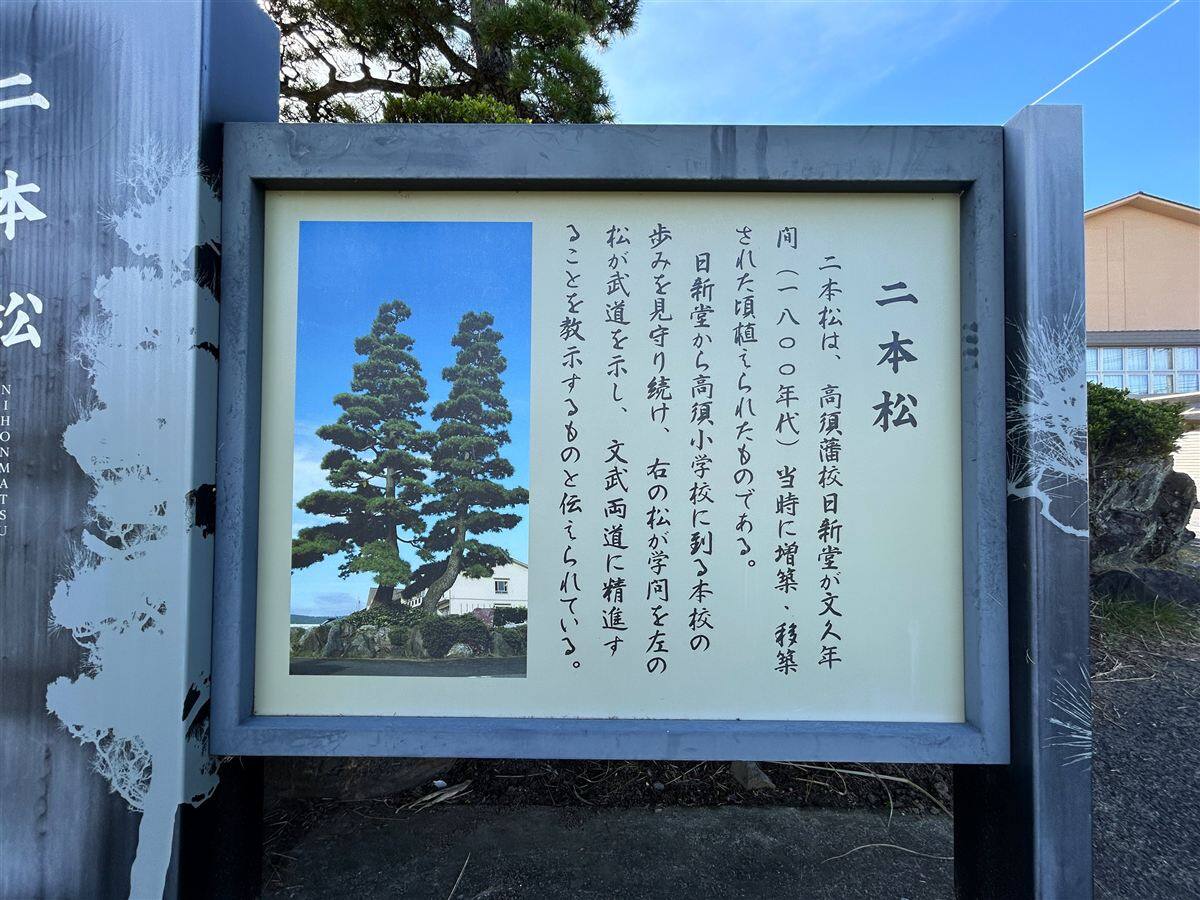 二本松
NIHONMATSU
二本松
二本松は、高須藩校日新堂が文久年
間（一八〇〇年代）当時に増築、移築
された頃植えられたものである。
日新堂から高須小学校に到る本校の
歩みを見守り続け、右の松が学問を左の
松が武道を示し、文武両道に精進す
ることを教示するものと伝えられている。